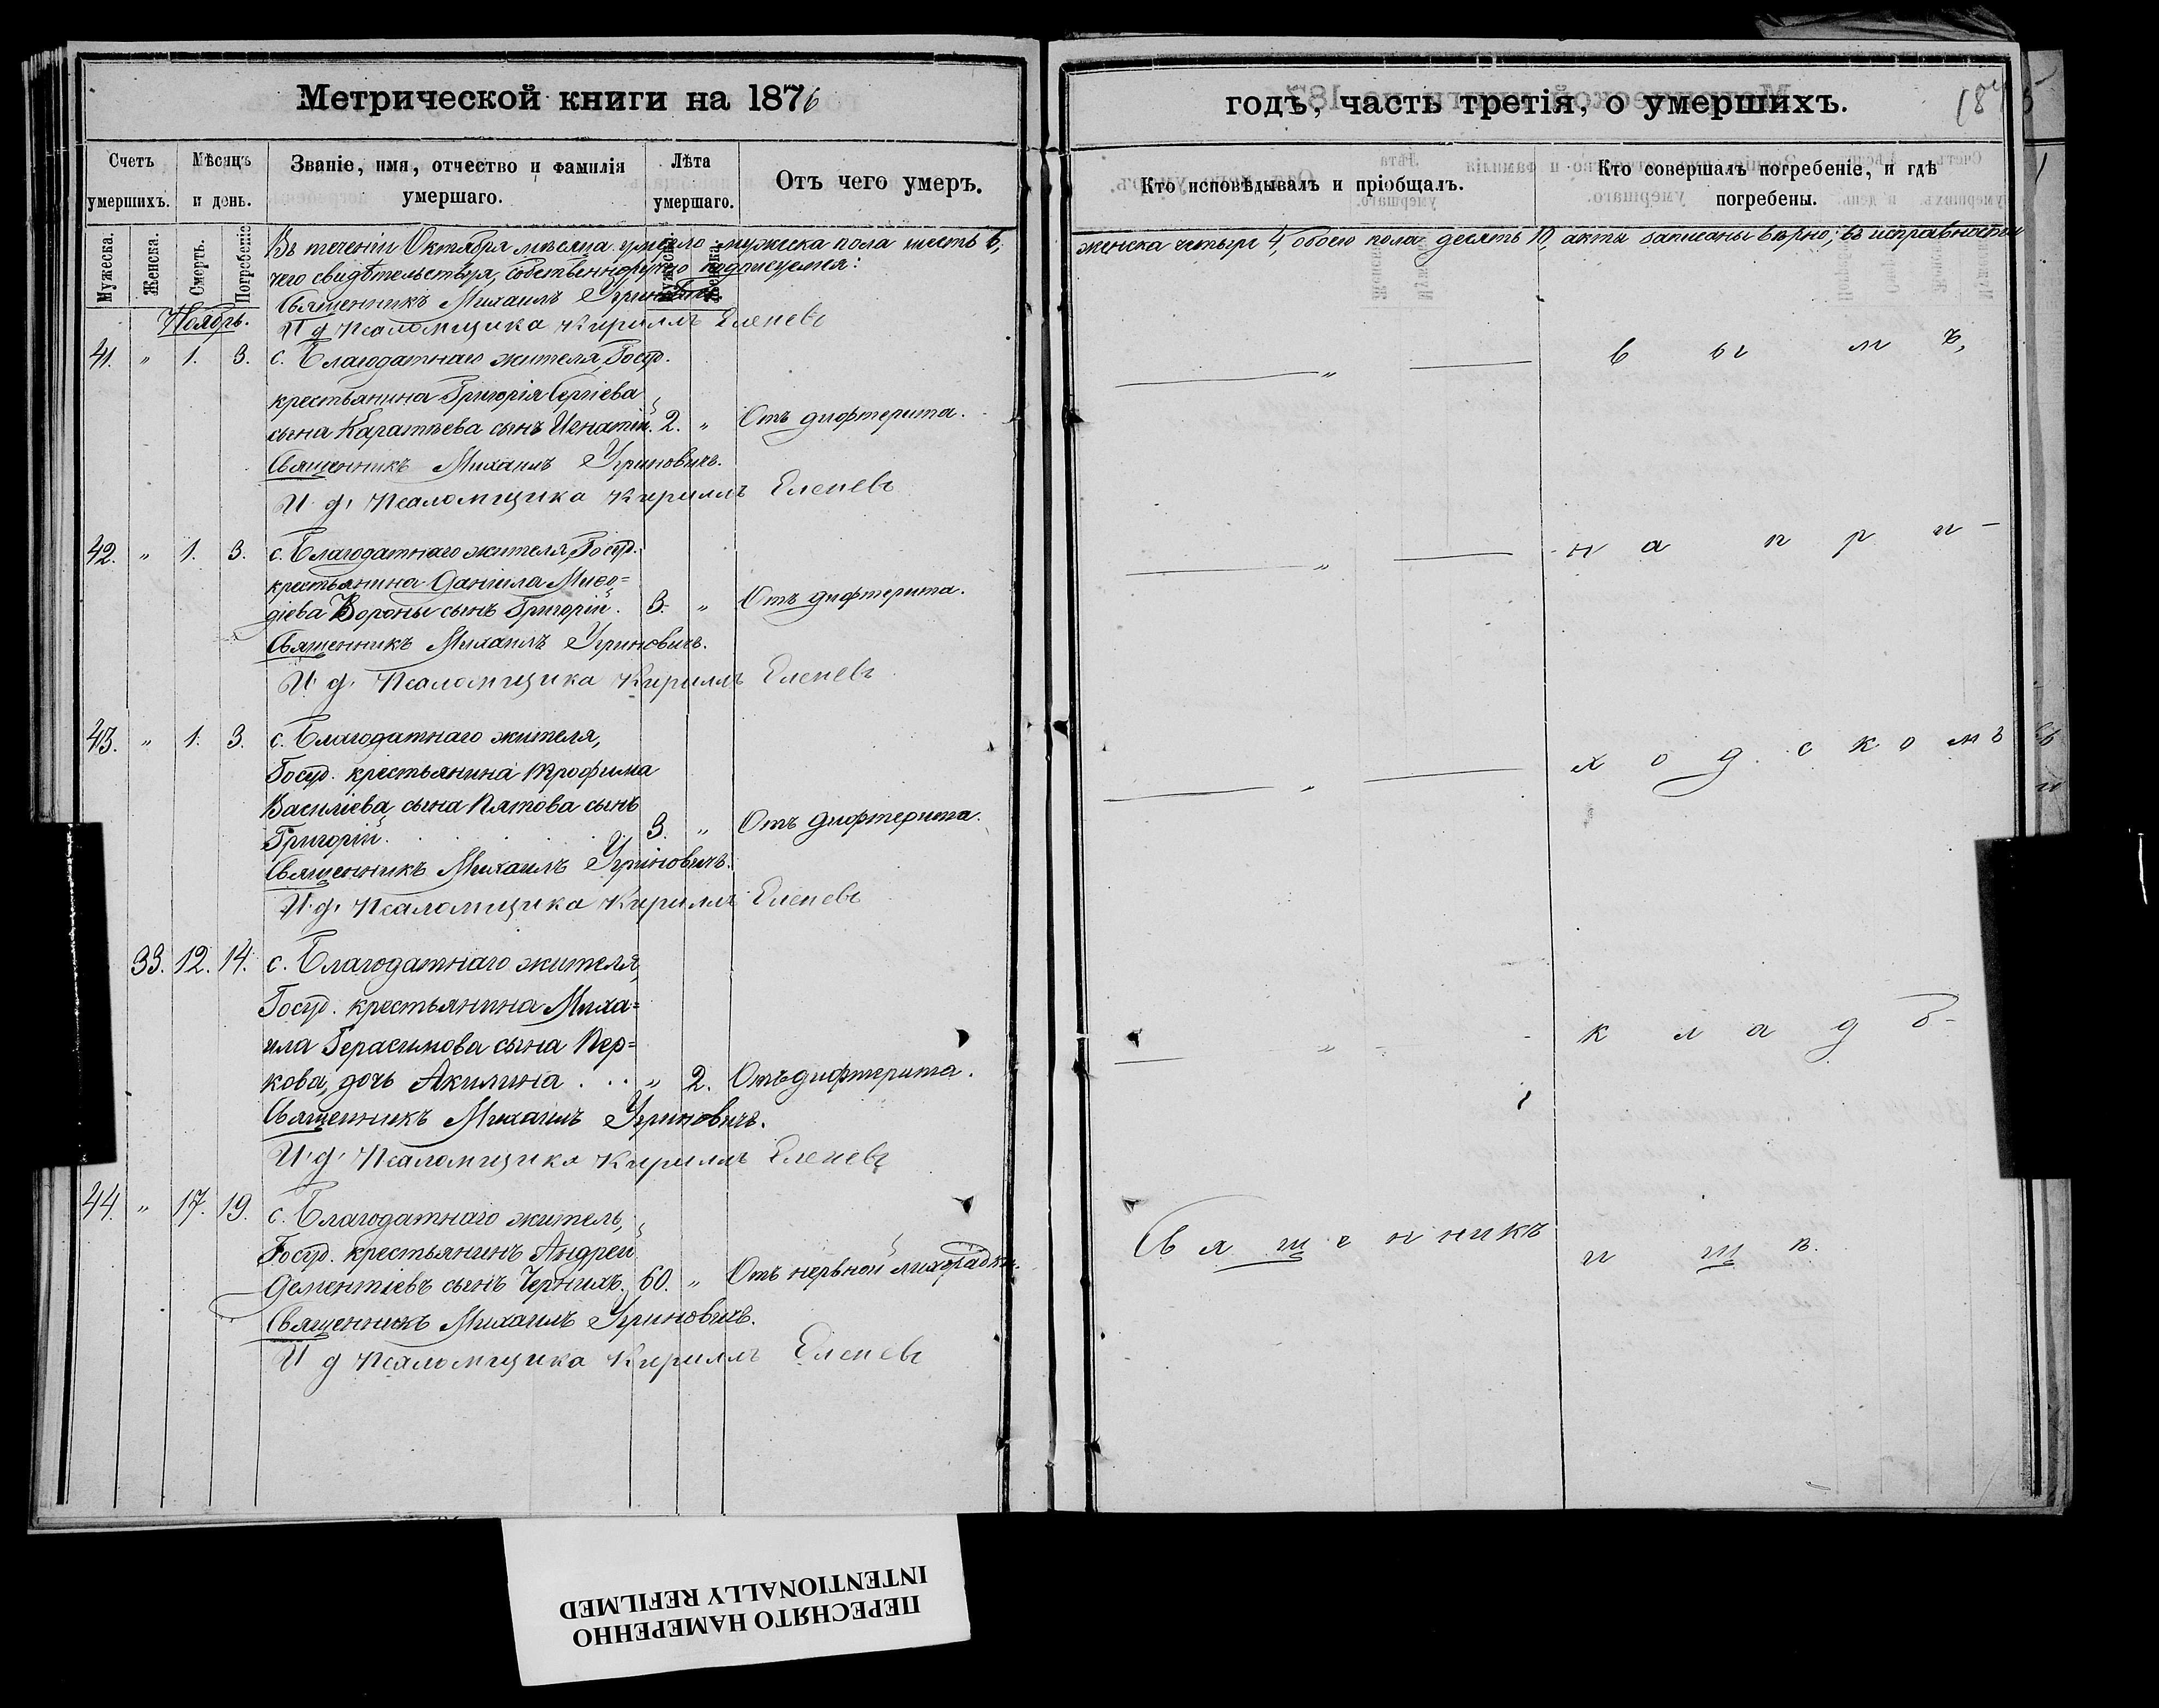 Метрической книги на 1876
годъ, часть третія, о умершихъ.
Счетъ умершихъ.
Мѣсяцъ и день.
Званіе, имя, отчество и фамилія умершаго.
Лѣта умершаго.
Отъ чего умеръ.
Кто исповѣдывалъ и пріобщалъ.
Кто совершалъ погребеніе, и гдѣ погребены.
Мужеска.
Женска.
Смерть.
Погребеніе.
Мужеска.
Женска.
Въ теченіи Октября мѣсяца умерло мужеска пола шесть 6, женска четыре 4, обоего пола десять 10, акты записаны вѣрно; въ исправности
чего свидѣтельствуя, собственноручно подписуемся:
Священникъ Михаилъ Угриновичъ
И д Псаломщика Кириллъ Еленевъ
Ноябрь.
41. " 1. 3. с. Благодатнаго жителя, Госуд.
крестьянина Григорія Сергіева
сына Каратѣева сынъ Игнатій. 2. " Отъ дифтерита. " в ы м ъ,
Священникъ Михаилъ Угриновичъ.
И. д. Псаломщика Кириллъ Еленевъ
42. " 1. 3. с. Благодатнаго жителя, Госуд.
крестьянина Даніила Миѳо=
діева Вороны сынъ Григорій. 3. " Отъ дифтерита. " н а п р и -
Священникъ Михаилъ Угриновичъ.
И. д. Псаломщика Кириллъ Еленевъ
43. " 1. 3. с. Благодатнаго жителя,
Госуд. крестьянина Трофима
Василіева сына Пятова сынъ
Григорій. 3. " Отъ дифтерита. " х о д с к о м ъ
Священникъ Михаилъ Угриновичъ.
И. д. Псаломщика Кириллъ Еленевъ
33. 12. 14. с. Благодатнаго жителя,
Госуд. крестьянина Миха=
ила Герасимова сына Пер=
кова, дочь Акилина . . . " 2. Отъ дифтерита. " к л а д б -
Священникъ Михаилъ Угриновичъ.
И. д. Псаломщика Кириллъ Еленевъ
44. " 17. 19. с. Благодатнаго житель,
Госуд. крестьянинъ Андрей
Дементіевъ сынъ Черныхъ. 60. " Отъ нервной лихорадки. Священникъ и щ ѣ.
Священникъ Михаилъ Угриновичъ.
И д Псаломщика Кириллъ Еленевъ
ПЕРЕСНЯТО НАМЕРЕННО
INTENTIONALLY REFILMED